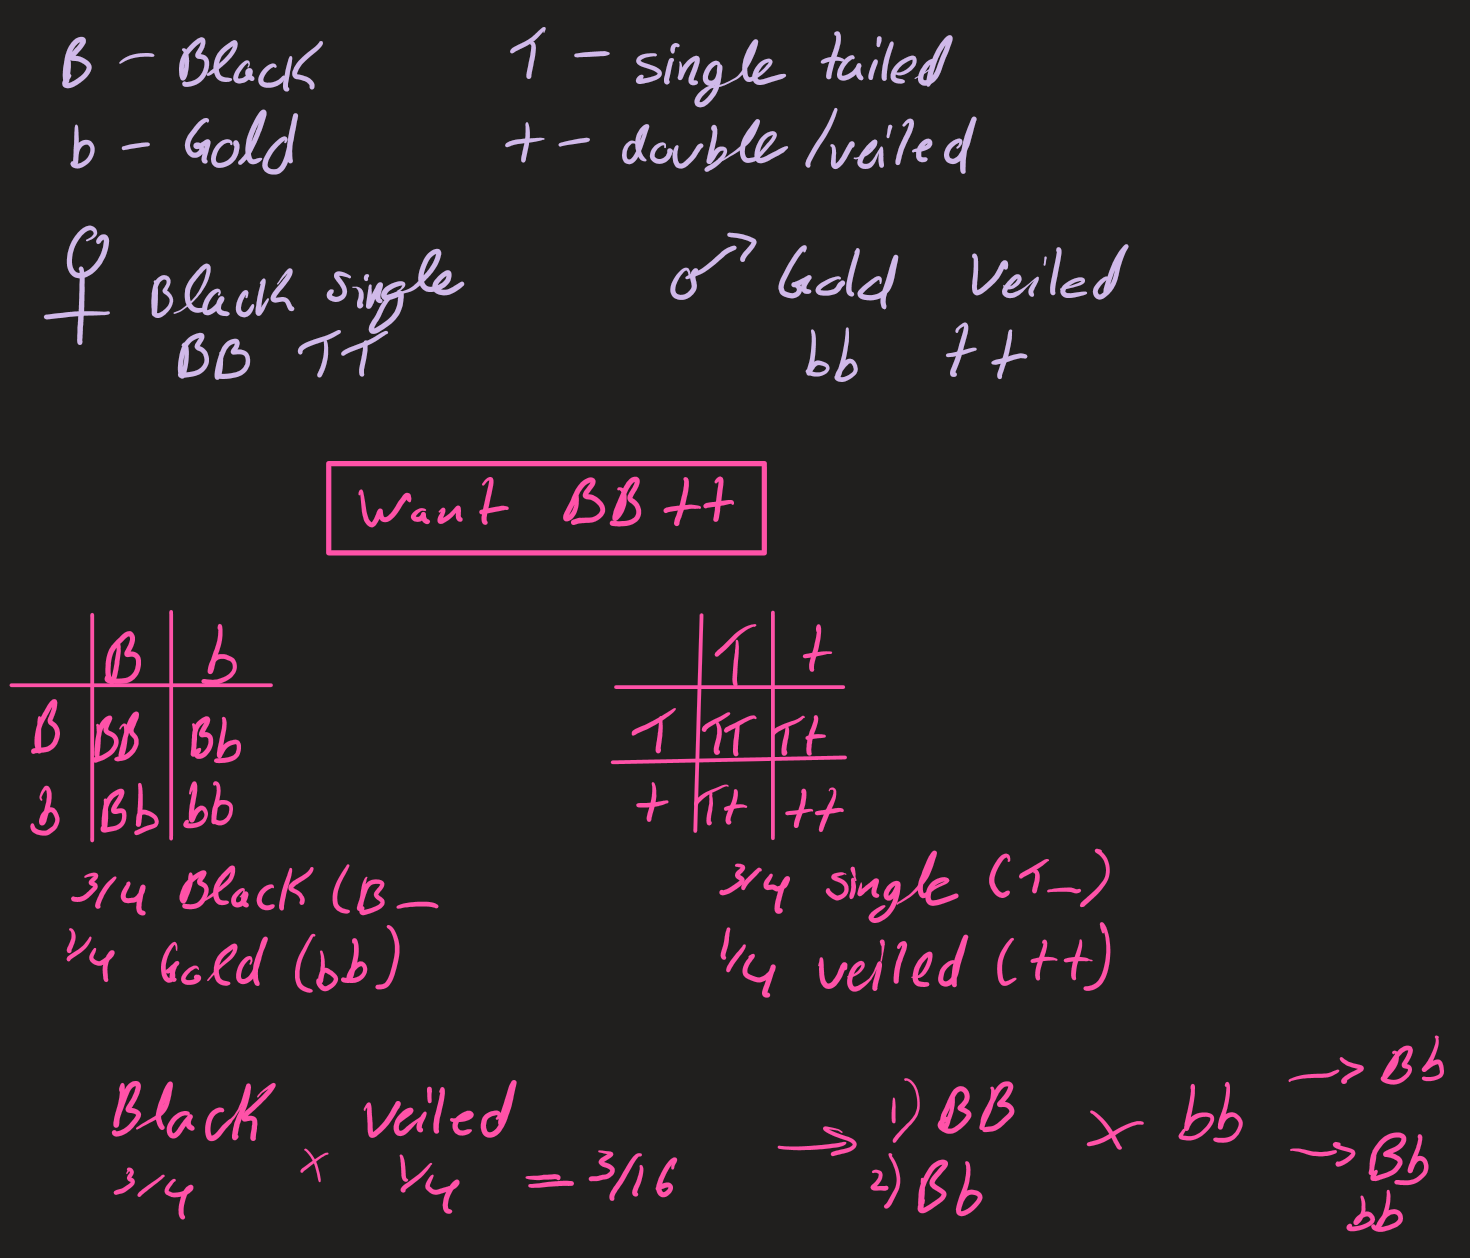 B - Black T - single tailed
b - Gold t - double /veiled
♀ Black single ♂ Gold Veiled
BB TT bb tt
Want BB tt
B b T t
B BB Bb T TT Tt
b Bb bb t Tt tt
3/4 Black (B_ 3/4 single (T_)
1/4 Gold (bb) 1/4 veiled (tt)
Black x veiled → 1) BB x bb → Bb
3/4 1/4 = 3/16 2) Bb → Bb
bb